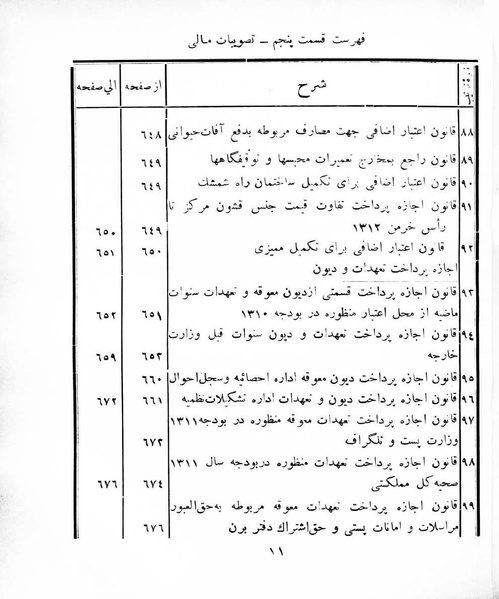 فهرست قسمت پنجم ـ تصویبات مالی
شرح از صفحه الی صفحه
۸۸ قانون اعتبار اضافی جهت مصارف مربوطه بدفع آفات حیوانی ۶۴۸
۸۹ قانون راجع بمخارج تعمیرات محبسها و توقیفگاهها ۶۴۹
۹۰ قانون اعتبار اضافی برای تکمیل ساختمان راه شمشک ۶۴۹
۹۱ قانون اجازه پرداخت تفاوت قیمت جنس قشون مرکز تا
رأس خرمن ۱۳۱۲ ۶۴۹ ۶۵۰
۹۲ قانون اعتبار اضافی برای تکمیل ممیزی ۶۵۰ ۶۵۱
اجازه پرداخت تعهدات و دیون
۹۳ قانون اجازه پرداخت قسمتی ازدیون معوقه و تعهدات سنوات
ماضیه از محل اعتبار منظوره در بودجه ۱۳۱۰ ۶۵۱ ۶۵۲
۹٤ قانون اجازه پرداخت تعهدات و دیون سنوات قبل وزارت
خارجه ۶۵۳ ۶۵۹
۹۵ قانون اجازه پرداخت دیون معوقه اداره احصائیه وسجل احوال ۶۶۰
۹۶ قانون اجازه پرداخت دیون و تعهدات اداره تشکیلات نظمیه ۶۶۱ ۶۷۲
۹۷ قانون اجازه پرداخت تعهدات معوقه منظوره در بودجه ۱۳۱۱
وزارت پست و تلگراف ۶۷۳
۹۸ قانون اجازه پرداخت تعهدات منظوره دربودجه سال ۱۳۱۱
صحیه کل مملکتی ۶۷٤ ۶۷۶
۹۹ قانون اجازه پرداخت تعهدات معوقه مربوطه به حق العبور
مراسلات و امانات پستی و حق اشتراك دفتر برن ۶۷۶
۱۱